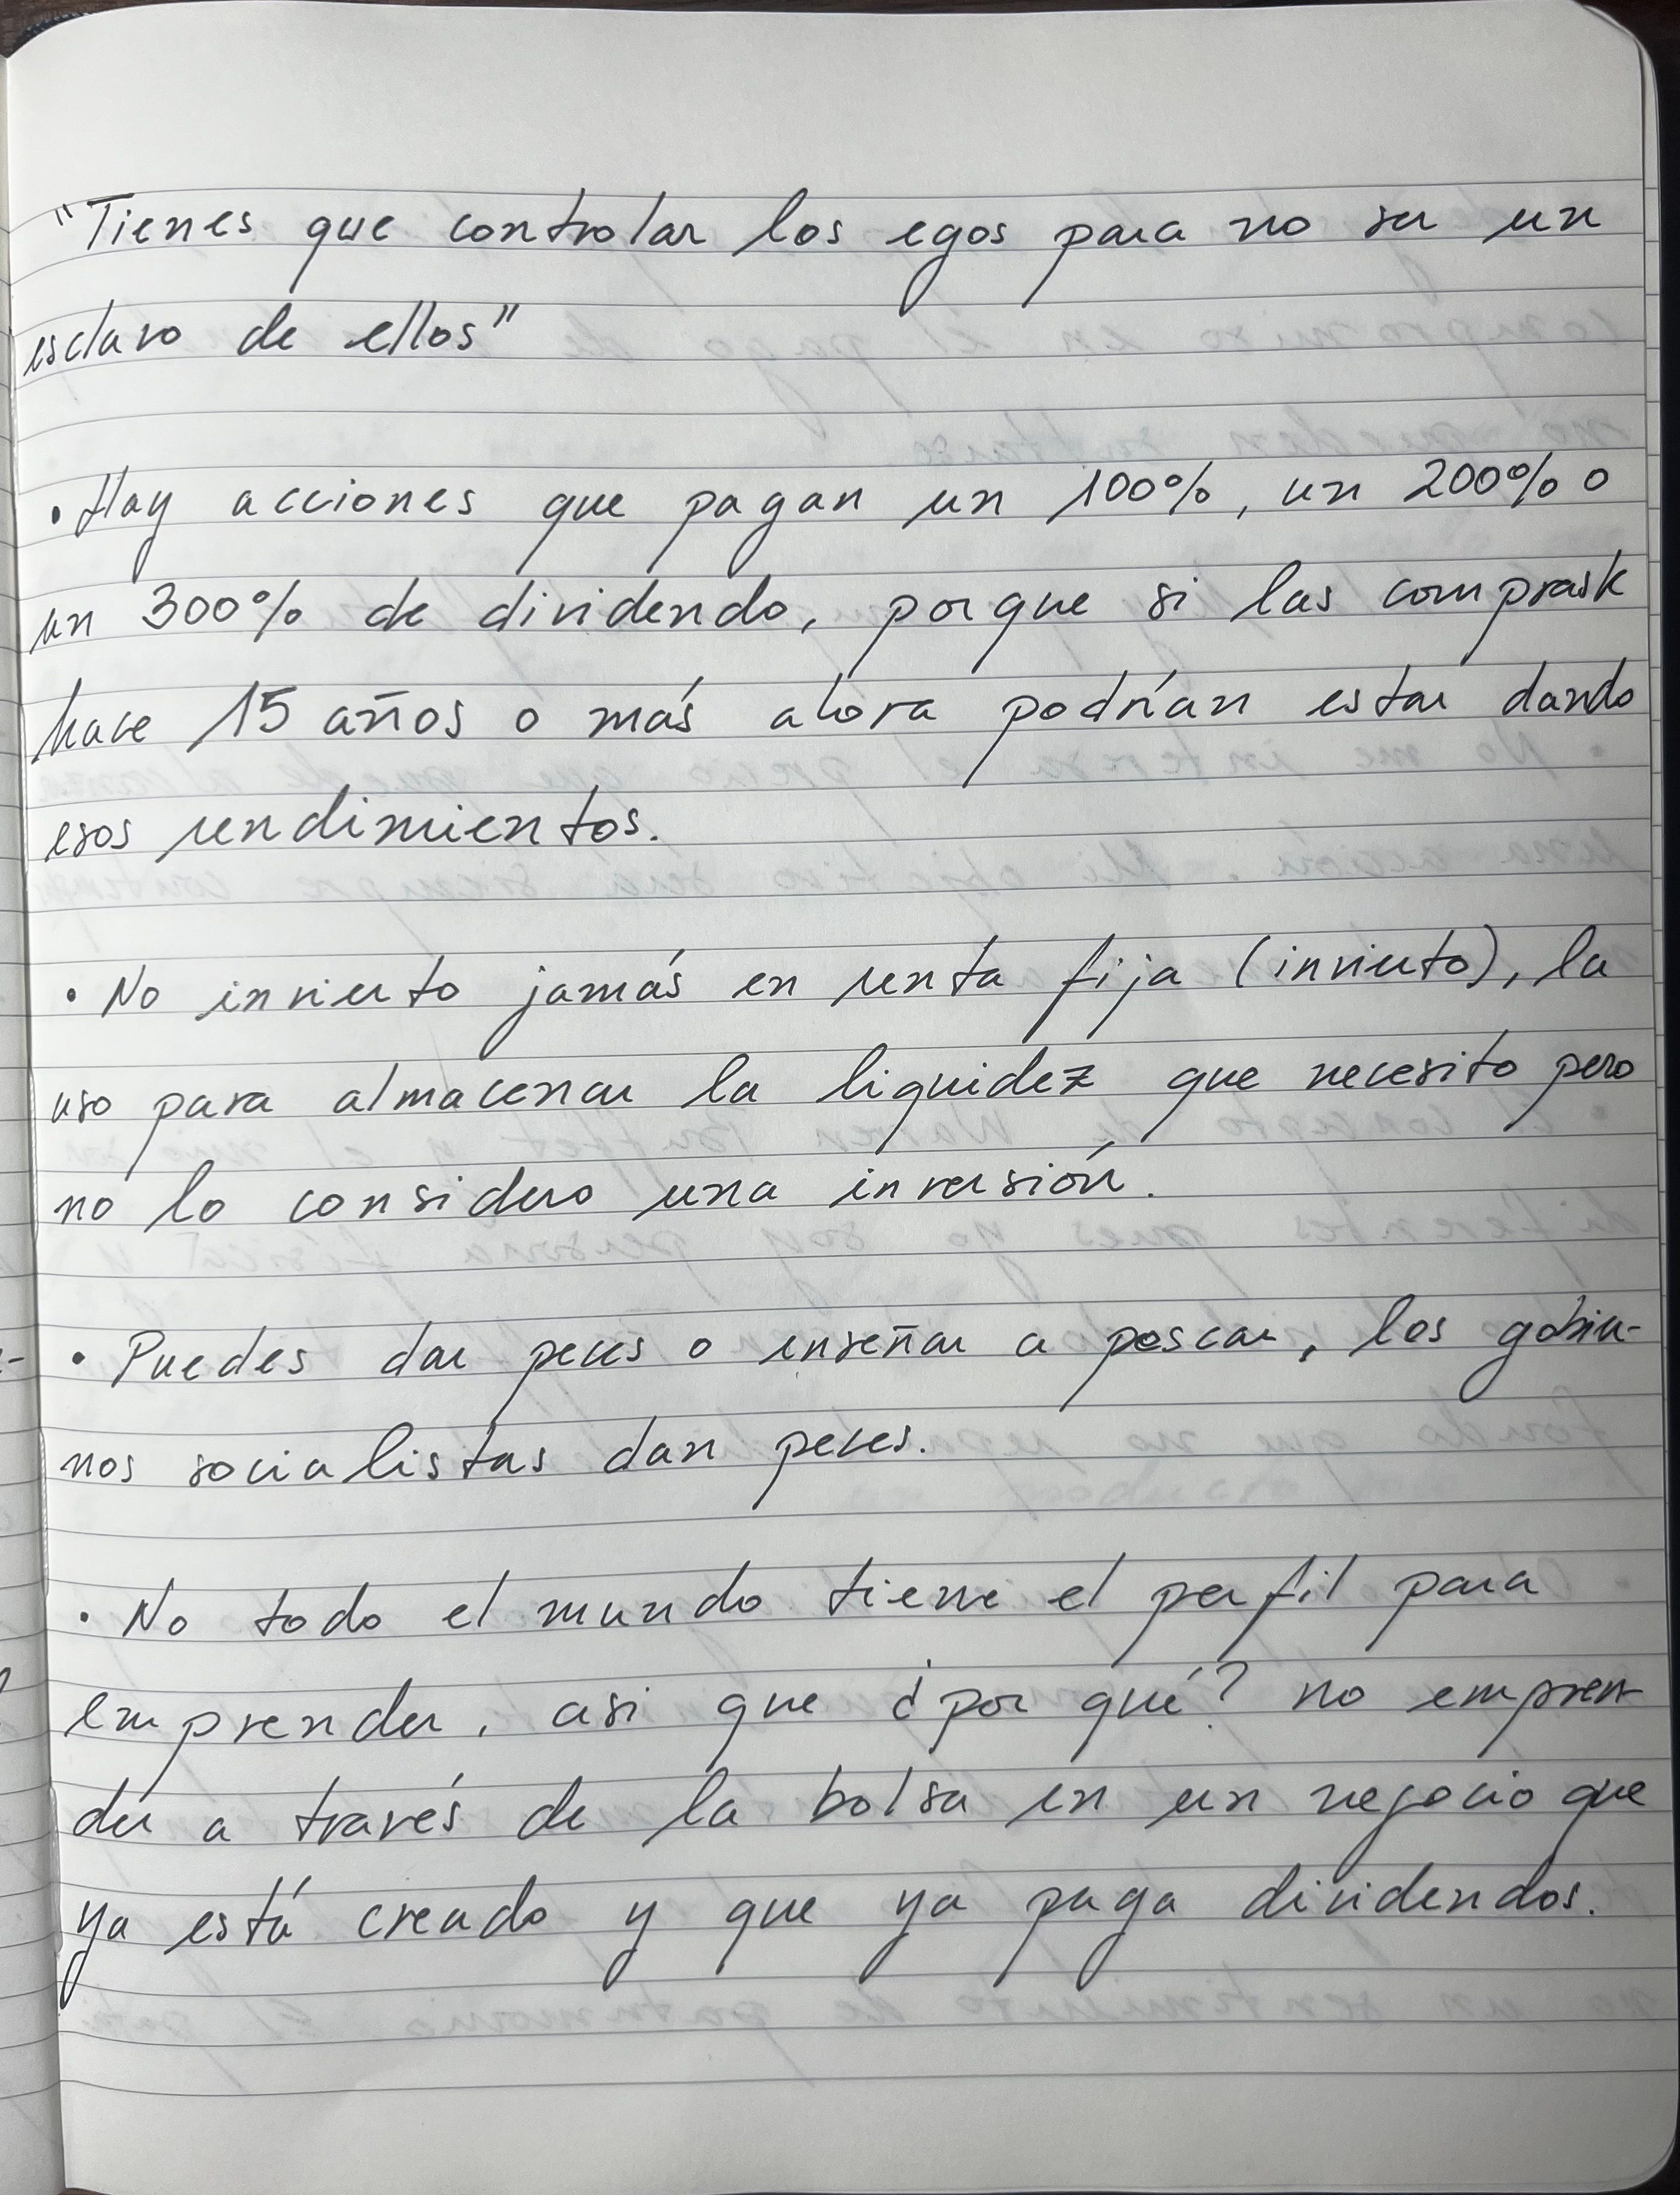 "Tienes que controlar los egos para no ser un
esclavo de ellos"
• Hay acciones que pagan un 100%, un 200% o
un 300% de dividendo, porque si las compraste
hace 15 años o más ahora podrían estar dando
esos rendimientos.
• No invierto jamás en renta fija (invierto), la
uso para almacenar la liquidez que necesito pero
no lo considero una inversión.
• Puedes dar peces o enseñar a pescar, los gobier-
nos socialistas dan peces.
• No todo el mundo tiene el perfil para
emprender, asi que ¿por qué? no empren-
der a través de la bolsa en un negocio que
ya está creado y que ya paga dividendos.